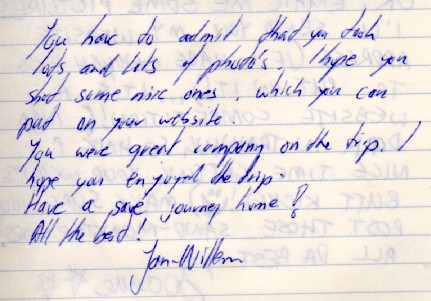 You have to admit that you took
lots, and lots of photo's. I hope you
shot some nice ones, which you can
put on your website.
You were great company on the trip. I
hope you enjoyed the trip.
Have a save journey home!
All the best!
Jan-Willem